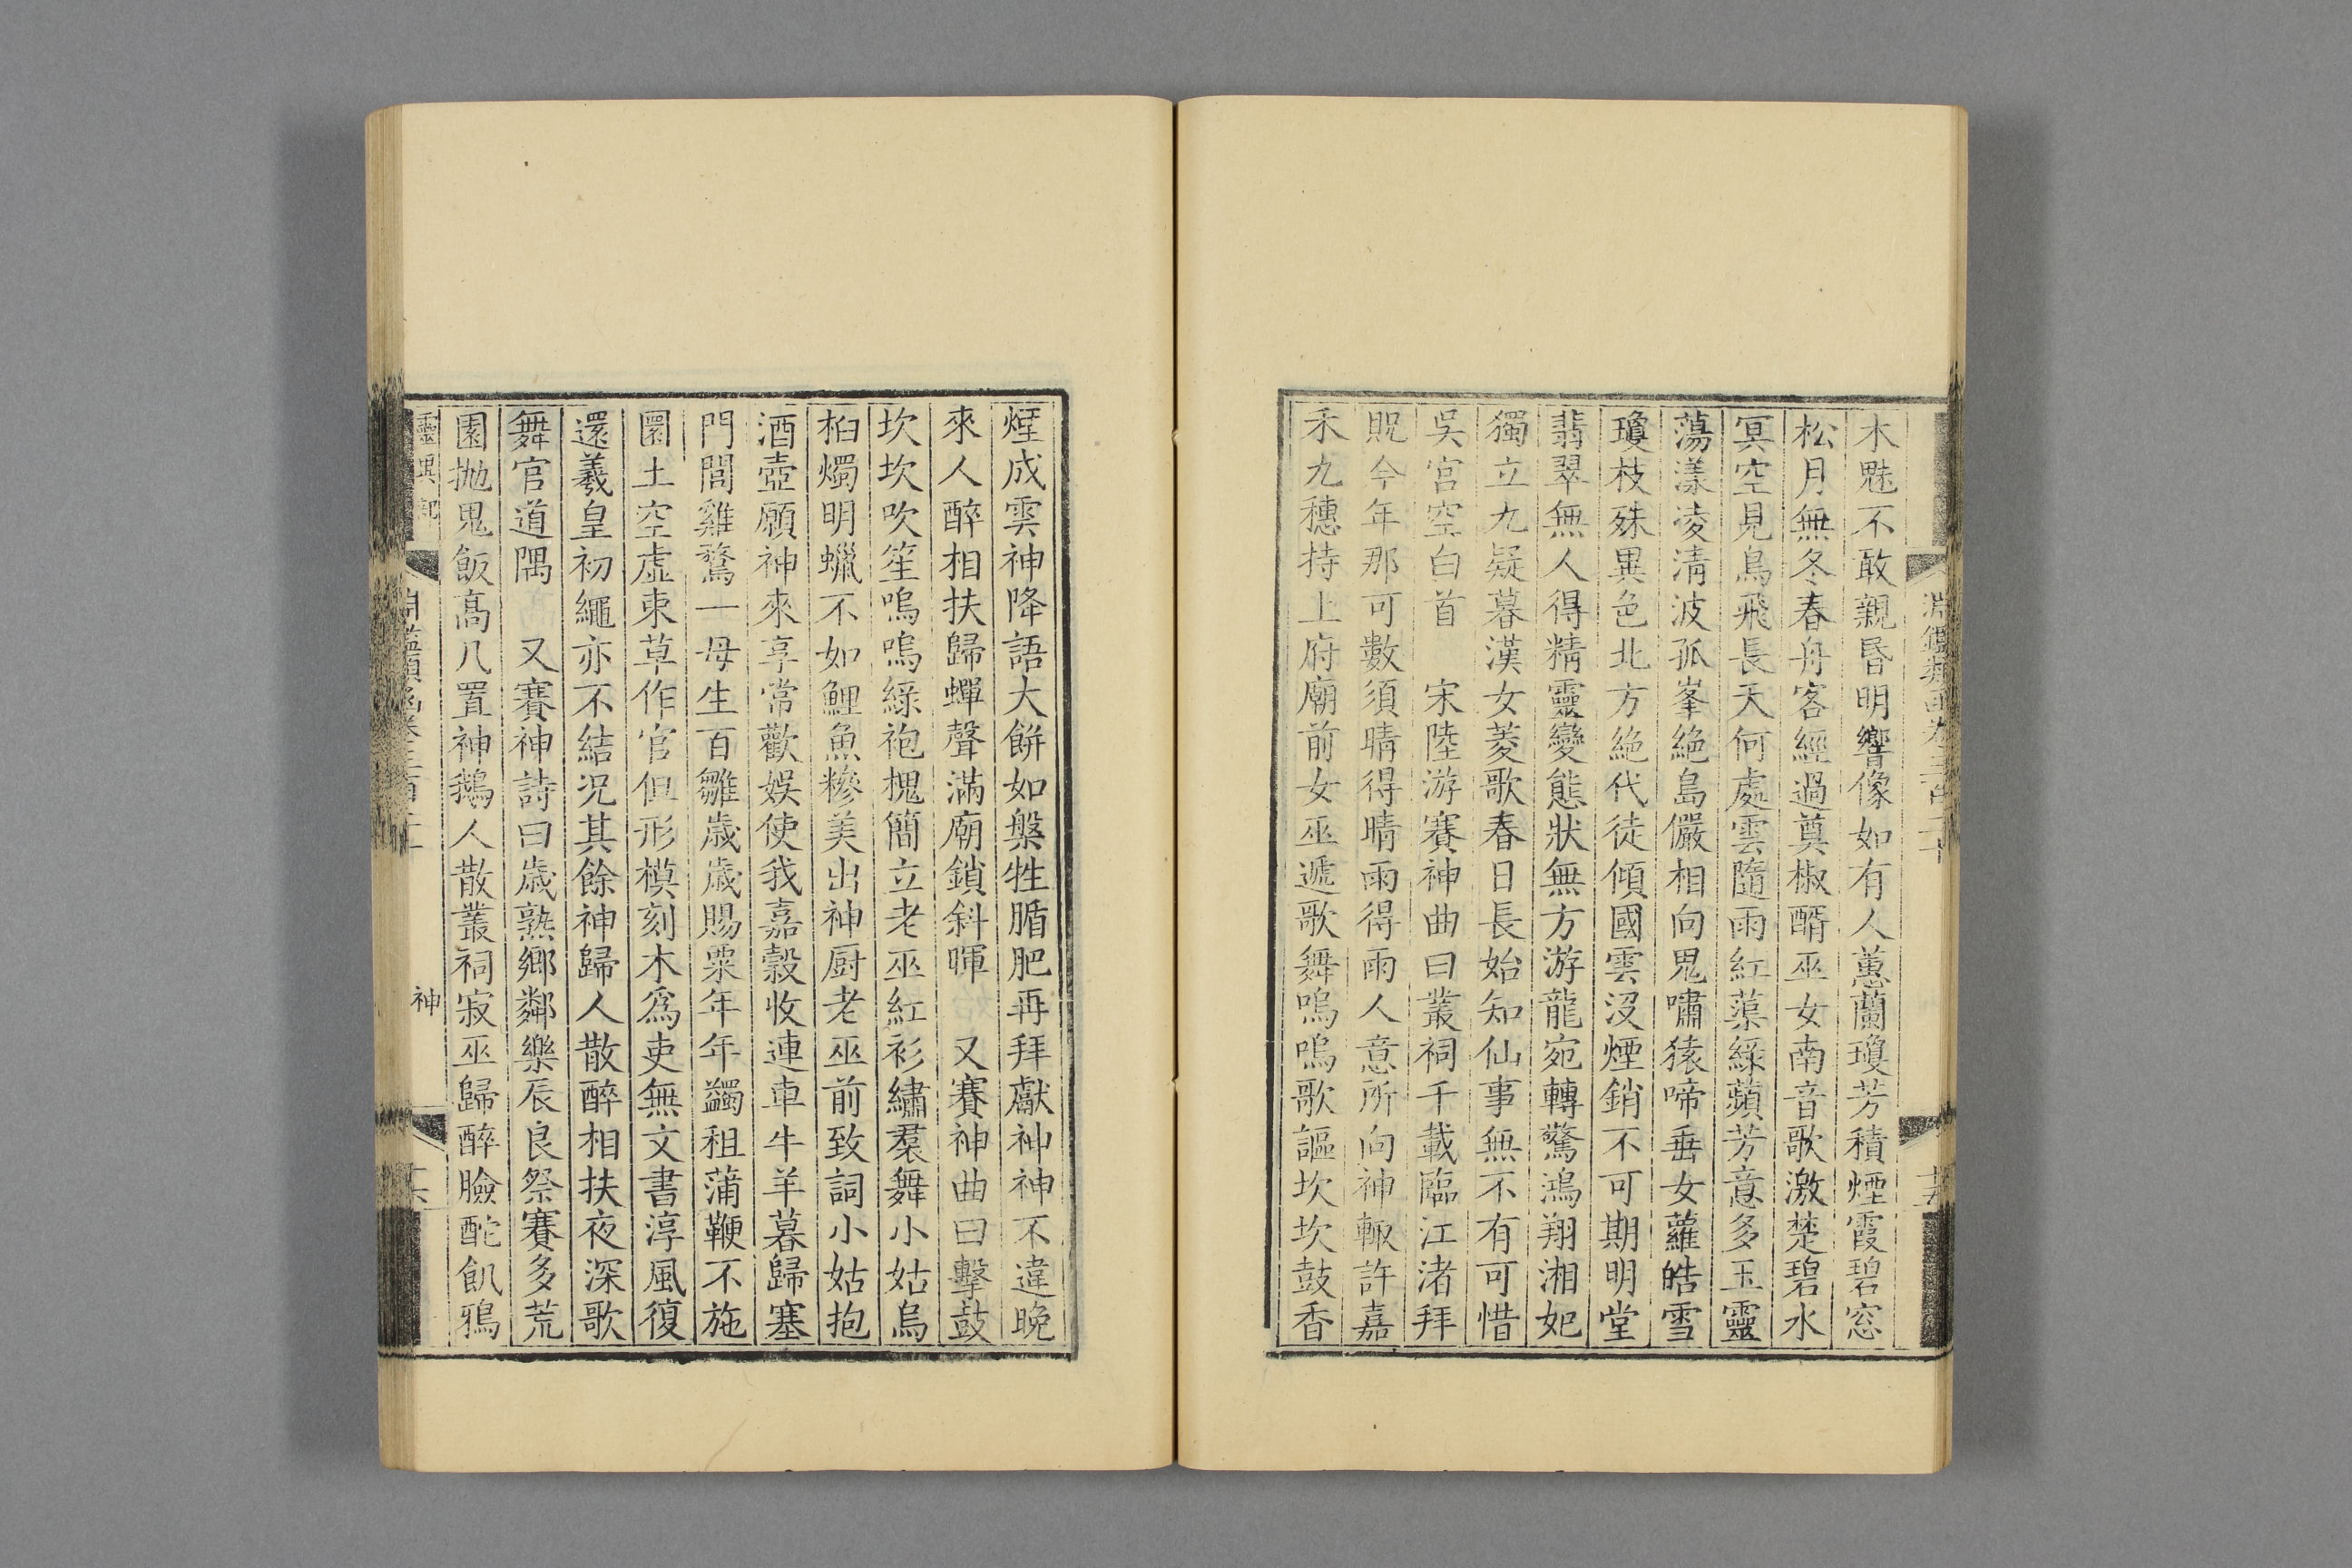 木魅不敢親昏明響像如有人蕙蘭瓊芳積煙霞碧窓
松月無冬春舟客經過奠椒醑巫女南音歌激楚碧水
冥空見鳥飛長天何處雲隨雨紅蕖綠蘋芳意多玉靈
蕩漾凌淸波孤峯絶島儼相向鬼嘯猿啼垂女蘿皓雪
瓊枝殊異色北方絶代徒傾國雲沒煙銷不可期明堂
翡翠無人得精靈變態狀無方游龍宛轉驚鴻翔湘妃
獨立九疑暮漢女菱歌春日長始知仙事無不有可惜
吳宮空白首　宋陸游賽神曲曰叢祠千載臨江渚拜
貺今年那可數須晴得晴雨得雨人意所向神輒許嘉
禾九穗持上府廟前女巫遞歌舞嗚嗚歌謳坎坎鼓香
煙成雲神降語大餅如槃牲腯肥再拜獻神神不違晩
來人醉相扶歸蟬聲滿廟鎖斜暉　又賽神曲曰擊鼓
坎坎吹笙嗚嗚綠袍槐簡立老巫紅衫繡裠舞小姑烏
桕燭明蠟不如鯉魚糝美出神厨老巫前致詞小姑抱
酒壺願神來享常歡娛使我嘉穀收連車牛羊暮歸塞
門閭雞鶩一母生百雛歲歲賜粟年年蠲租蒲鞭不施
圜土空虛束草作官但形模刻木爲吏無文書淳風復
還羲皇初繩亦不結況其餘神歸人散醉相扶夜深歌
舞官道隅　又賽神詩曰歲熟鄉鄰樂辰良祭賽多荒
園抛鬼飯高几置神鵝人散叢祠寂巫歸醉臉酡飢鴉
靈異部
神